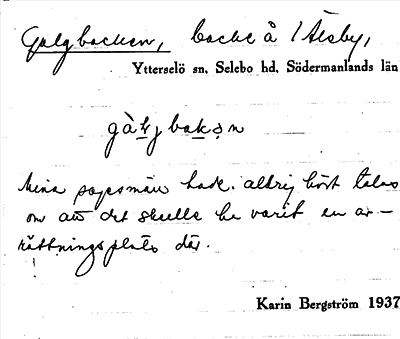 Galgbacken, backe å 1 Åsby,
Ytterselö sn. Selebo hd. Södermanlands län
Mina sagesmän hade aldrig hört talas
om att det skulle ha varit en av-
rättningsplats där.
Karin Bergström 1937